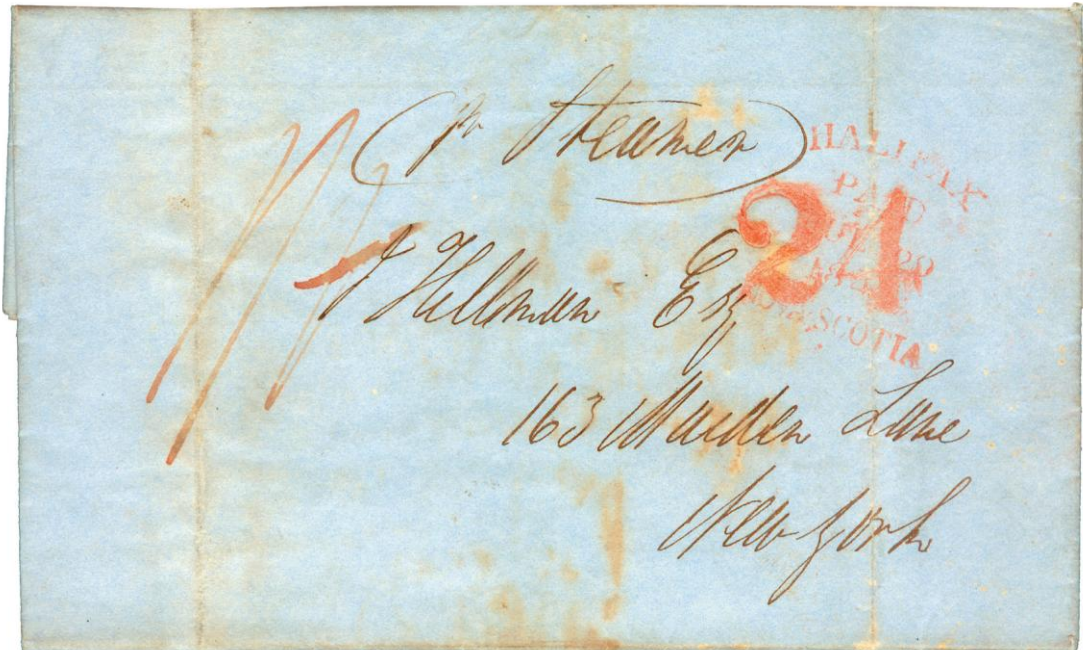 pr Steamer
HALIFAX
PAID
24
NOVA SCOTIA
J Hillman Esq
163 Maiden Lane
New York